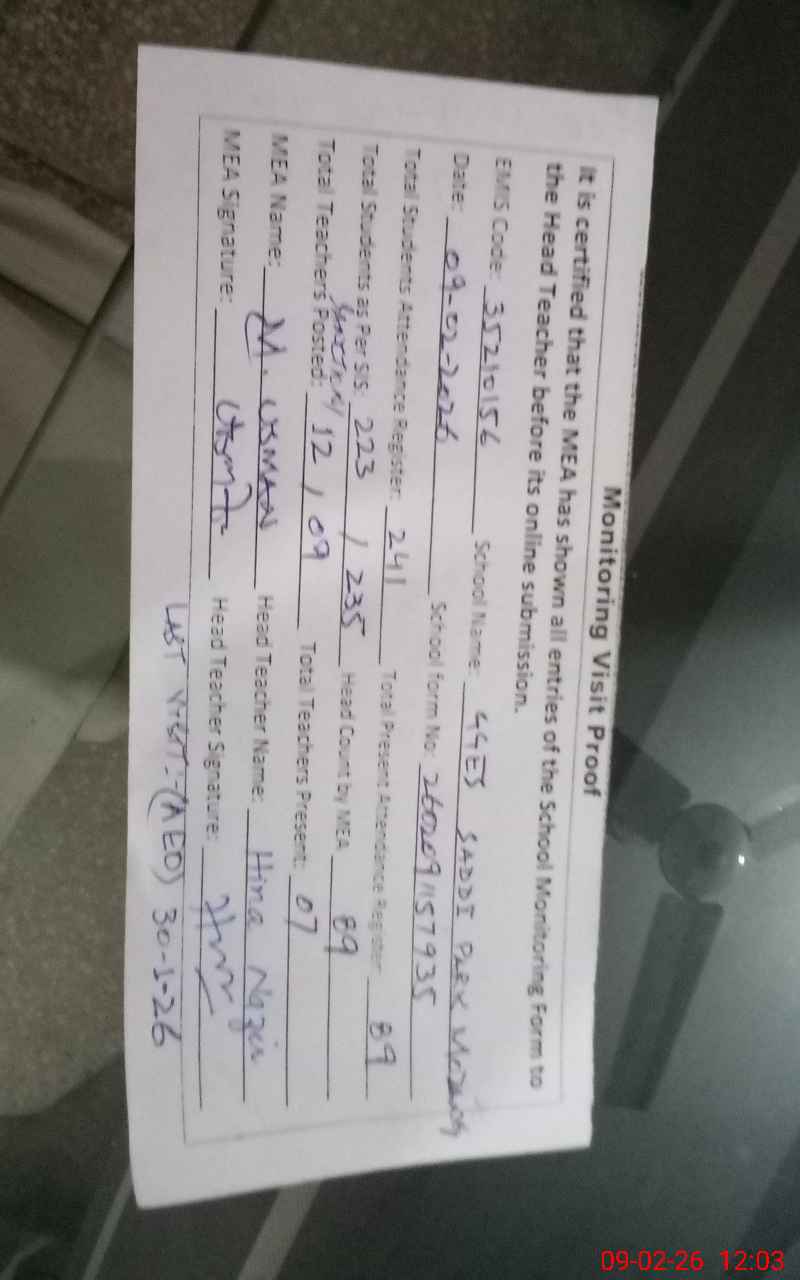 Monitoring Visit Proof
It is certified that the MEA has shown all entries of the School Monitoring Form to
the Head Teacher before its online submission.
EMIS Code: 35210156 School Name: GGES SADDI PARK MOZANG
Date: 09-02-2026 School form No: 2602091157935
Total Students Attendance Register: 241 Total Present Attendance Register: 89
Total Students as Per SIS: 223 / 235 Head Count by MEA 89
Total Teachers Posted: 12 / 09 Total Teachers Present: 07
MEA Name: M. USMAN Head Teacher Name: Hina Nazir
MEA Signature: Head Teacher Signature:
LAST VISIT:- (AEO) 30-1-26
09-02-26 12:03